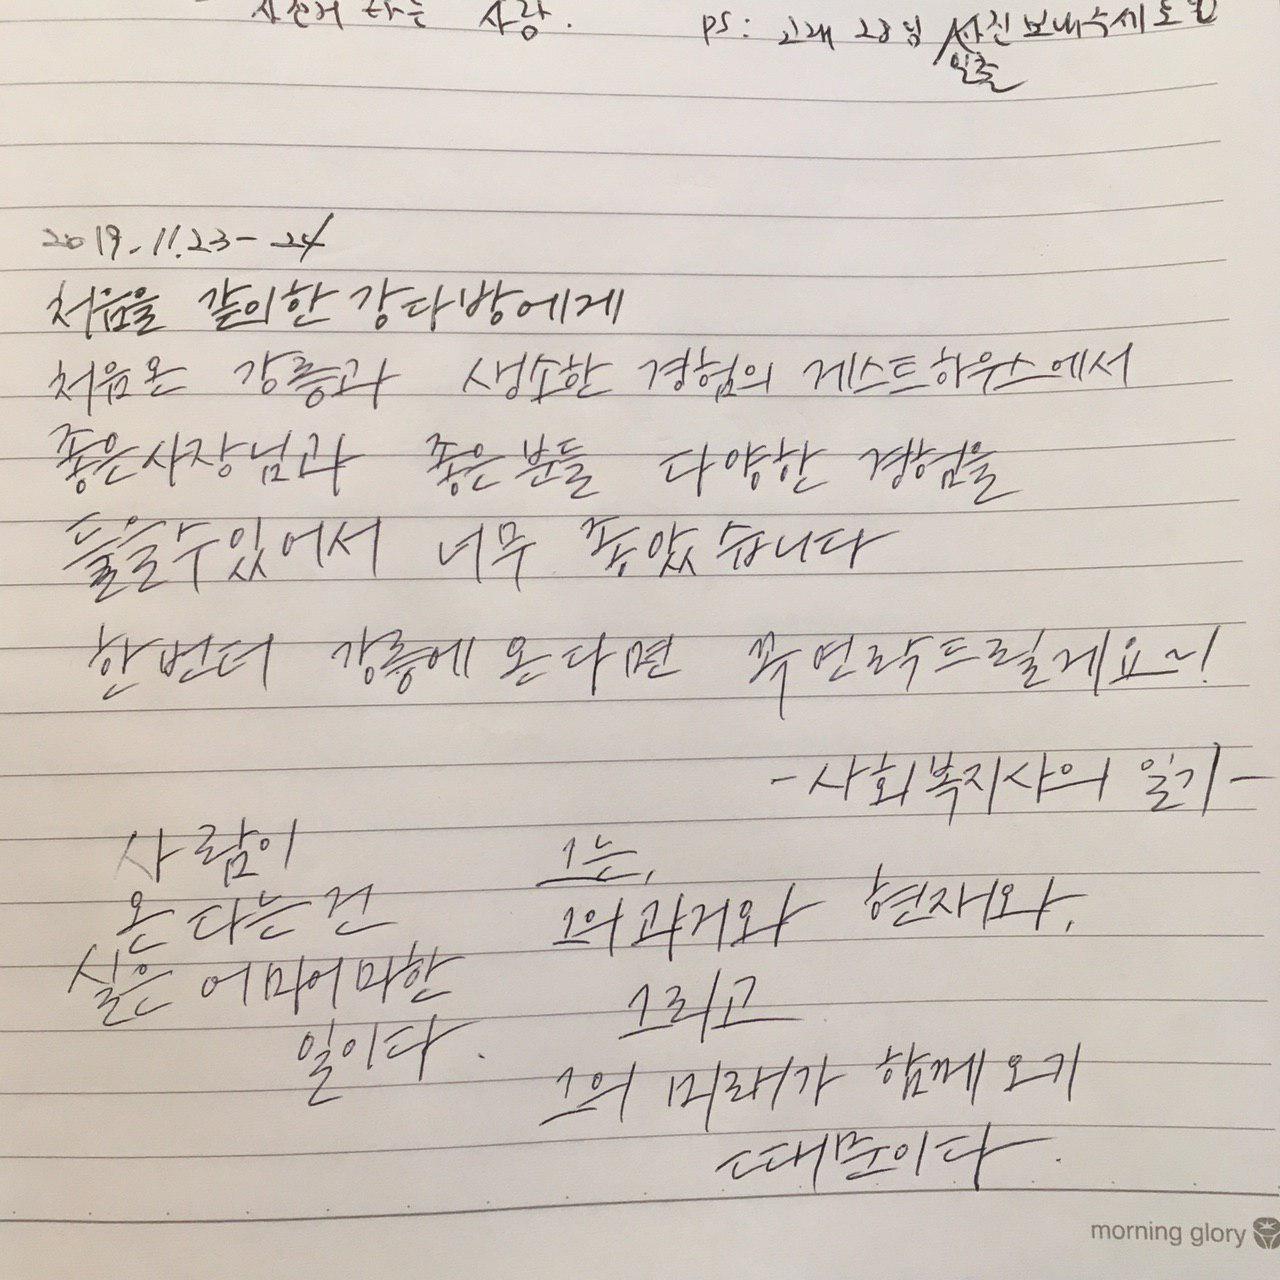 자전거 타는 사람.
ps: 고래 28님 사진 보내주세요
2019.11.23-24
처음을 같이한 강다방에게
처음온 강릉과 생소한 경험의 게스트하우스에서
좋은사장님과 좋은분들 다양한 경험을
들을수있어서 너무 좋았습니다
한번더 강릉에 온다면 꼭 연락드릴게요~!
-사회복지사의 일기-
사람이
온다는건
실은 어마어마한
일이다.
그는,
그의 과거와 현재와,
그리고
그의 미래가 함께 오기
때문이다.
morning glory